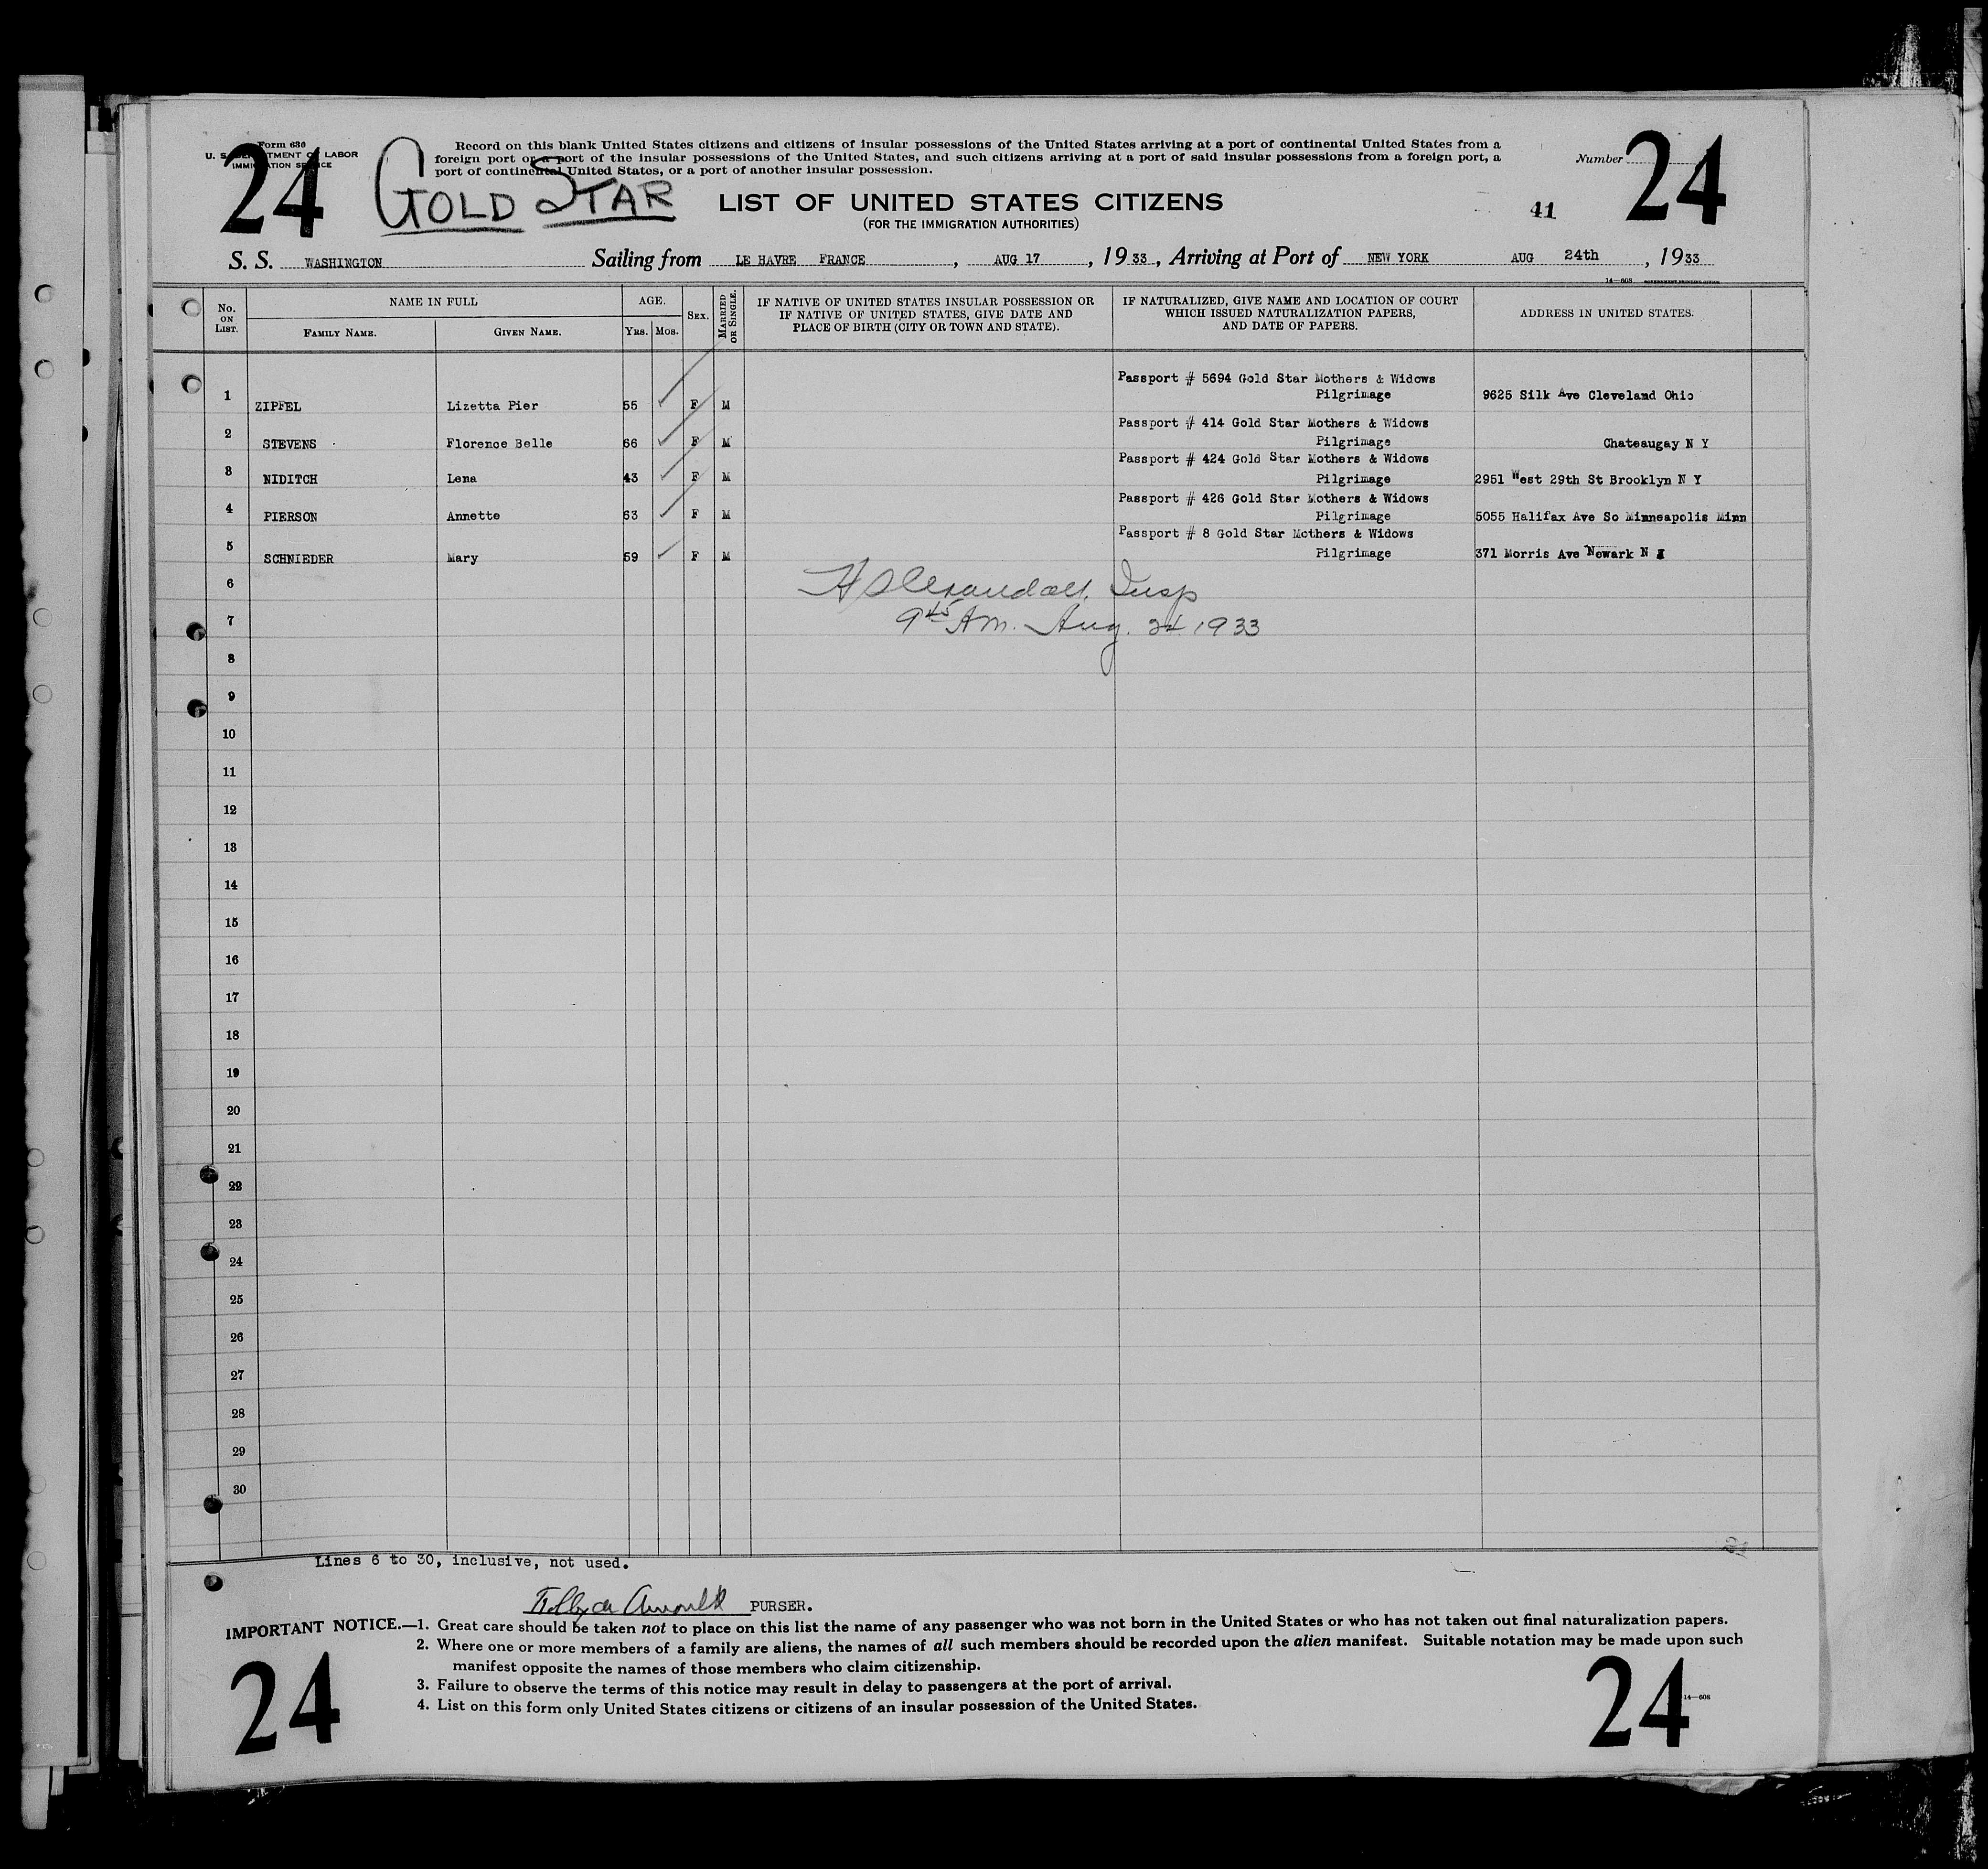 Form 636
U. S. DEPARTMENT OF LABOR
IMMIGRATION SERVICE
24
GOLD STAR
Record on this blank United States citizens and citizens of insular possessions of the United States arriving at a port of continental United States from a
foreign port or a port of the insular possessions of the United States, and such citizens arriving at a port of said insular possessions from a foreign port, a
port of continental United States, or a port of another insular possession.
Number
24
LIST OF UNITED STATES CITIZENS
(FOR THE IMMIGRATION AUTHORITIES)
41
S. S. WASHINGTON Sailing from LE HAVRE FRANCE, AUG 17, 1933, Arriving at Port of NEW YORK AUG 24th, 1933
14—608 GOVERNMENT PRINTING OFFICE
No. ON LIST.
NAME IN FULL
FAMILY NAME.
GIVEN NAME.
AGE.
YRS.
MOS.
SEX.
MARRIED OR SINGLE.
IF NATIVE OF UNITED STATES INSULAR POSSESSION OR
IF NATIVE OF UNITED STATES, GIVE DATE AND
PLACE OF BIRTH (CITY OR TOWN AND STATE).
IF NATURALIZED, GIVE NAME AND LOCATION OF COURT
WHICH ISSUED NATURALIZATION PAPERS,
AND DATE OF PAPERS.
ADDRESS IN UNITED STATES.
Passport # 5694 Gold Star Mothers & Widows
1 ZIPFEL Lizetta Pier 55 F M Pilgrimage 9625 Silk Ave Cleveland Ohio
Passport # 414 Gold Star Mothers & Widows
2 STEVENS Florence Belle 66 F M Pilgrimage Chateaugay N Y
Passport # 424 Gold Star Mothers & Widows
3 NIDITCH Lena 43 F M Pilgrimage 2951 West 29th St Brooklyn N Y
Passport # 426 Gold Star Mothers & Widows
4 PIERSON Annette 63 F M Pilgrimage 5055 Halifax Ave So Minneapolis Minn
Passport # 8 Gold Star Mothers & Widows
5 SCHNIEDER Mary 59 F M Pilgrimage 371 Morris Ave Newark N J
6
Insp
7
9 45 AM. Aug. 24 1933
8
9
10
11
12
13
14
15
16
17
18
19
20
21
22
23
24
25
26
27
28
29
30
Lines 6 to 30, inclusive, not used.
PURSER.
IMPORTANT NOTICE.—1. Great care should be taken not to place on this list the name of any passenger who was not born in the United States or who has not taken out final naturalization papers.
2. Where one or more members of a family are aliens, the names of all such members should be recorded upon the alien manifest. Suitable notation may be made upon such
manifest opposite the names of those members who claim citizenship.
3. Failure to observe the terms of this notice may result in delay to passengers at the port of arrival.
4. List on this form only United States citizens or citizens of an insular possession of the United States.
24
24
14—608